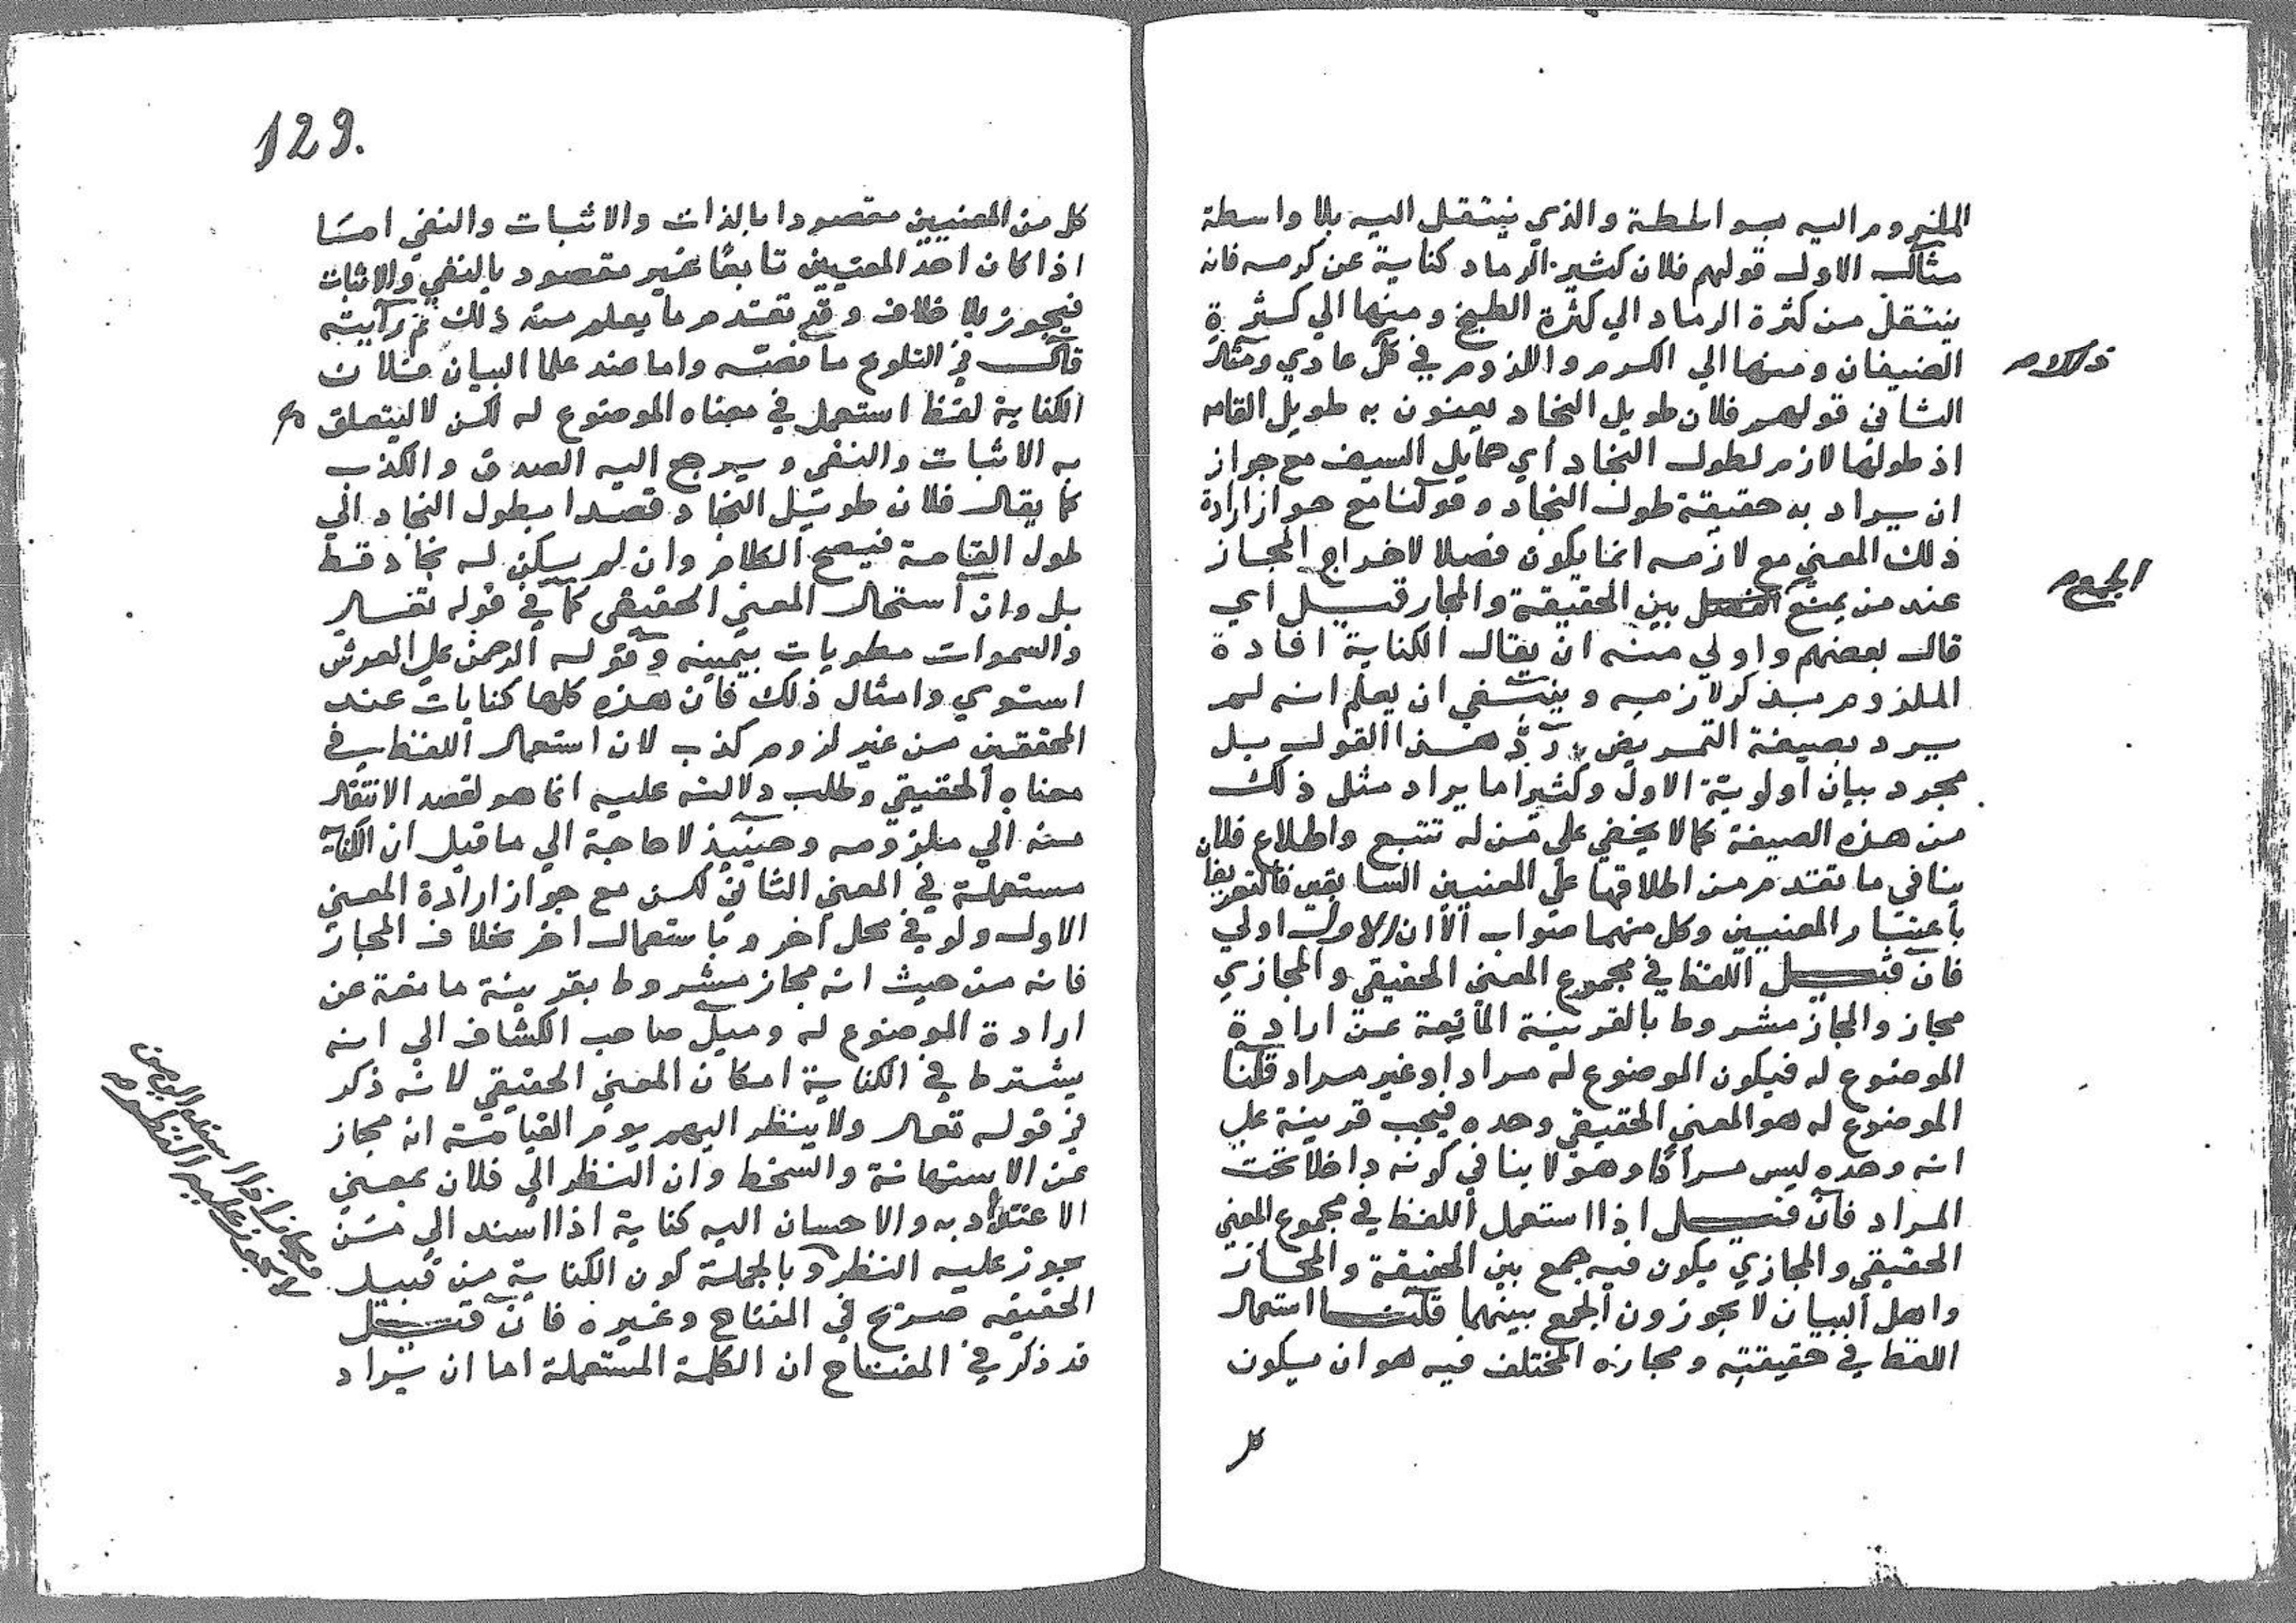 الملزوم اليه بواسطة والذي ينتقل اليه بلا واسطة
مثال الاول قولهم فلان كثير الرماد كناية عن كرمه فانه
ينتقل من كثرة الرماد الي كثرة الطبخ ومنها الي كثرة
الضيفان ومنها الي الكرم واللزوم في كل عادي ومثال
الثاني قولهم فلان طويل النجاد يعنون به طويل القامه
اذ طولها لازم لطول النجاد أي حمايل السيف مع جواز
ان يراد به حقيقة طول النجاد وقولنا مع جواز ارادة
ذلك المعني مع لازمه انما يكون فصلا لاخراج المجاز
عند من يمنع بين الحقيقة والمجاز قيل أي
الجمع
قال بعضهم واولي منه ان يقال الكناية افادة
الملزوم بذكر لازمه وينبغي ان يعلم انه لم
يرد بصيغة التمريض ردّ هذا القول بل
مجرد بيان أولويّة الاول وكثيرا ما يراد مثل ذلك
من هذه الصيغة كما لا يخفي علي من له تتبع واطلاع فلا
ينافي ما تقدم من اطلاقها علي المعنيين السابقين فالتعريفا
باعتبار المعنيين وكل منهما صواب الّا ان الاول اولي
فان قيل اللفظ في مجموع المعني الحقيقي والمجازي
مجاز والمجاز مشروط بالقرينة المانعة عن ارادة
الموضوع له فيكون الموضوع له مرادا وغير مراد قلنا
الموضوع له هو المعني الحقيقي وحده فيجب قرينة علي
انه وحده ليس مرادًا وهو لا ينافي كونه داخلا تحت
المراد فان قيل اذا استعمل اللفظ في مجموع المعني
الحقيقي والمجازي يكون فيه جمع بين الحقيقة والمجاز
واهل البيان لا يجوزون الجمع بينهما قلنا استعمال
اللفظ في حقيقته ومجازه المختلف فيه هو ان يكون
كل
129.
كل من المعنيين مقصودا بالذات والاثبات والنفي امّا
اذا كان احد المعنيين تابعًا غير مقصود بالنفي والاثبات
فيجوز بلا خلاف وقد تقدم ما يعلم منه ذلك ثم رأيته
قال في التلويح ما نصه واما عند علما البيان فلان
الكناية لفظ استعمل في معناه الموضوع له لكن لا ليتعلق
به الاثبات والنفي ويرجع اليه الصدق والكذب
كما يقال فلان طويل النجاد قصدا بطول النجاد الي
طول القامة فيصح الكلام وان لم يكن له نجاد قط
بل وان استحال المعني الحقيقي كما في قوله تعالي
والسموات مطويات بيمينه وقوله الرحمن علي العرش
استوي وامثال ذلك فان هذه كلها كنايات عند
المحققين من غير لزوم كذب لان استعمال اللفظ في
معناه الحقيقي وطلب دلالته عليه انما هو لقصد الانتقال
منه الي ملزومه وحينيذ لا حاجة الي ما قيل ان الكناية
مستعملة في المعني الثاني لكن مع جواز ارادة المعني
الاول ولو في محل آخر وباستعمال اخر بخلاف المجاز
فانه من حيث انه مجاز مشروط بقرينة مانعة عن
ارادة الموضوع له وميل صاحب الكشاف الي انه
يشترط في الكناية امكان المعني الحقيقي لانه ذكر
في قوله تعالي ولا ينظر اليهم يوم القيامة انه مجاز
عن الاستهانة والسخط وان النظر الي فلان بمعني
الاعتداد به والاحسان اليه كناية اذا اسند الي من
يجوز عليه النظر وبالجملة كون الكناية من قبيل
مجاز اذا اسند الي من
لا يجوز عليه النظر
الحقيقه صرّح في المفتاح وغيره فان قيل
قد ذكر في المفتاح ان الكلمة المستعملة اما ان يراد